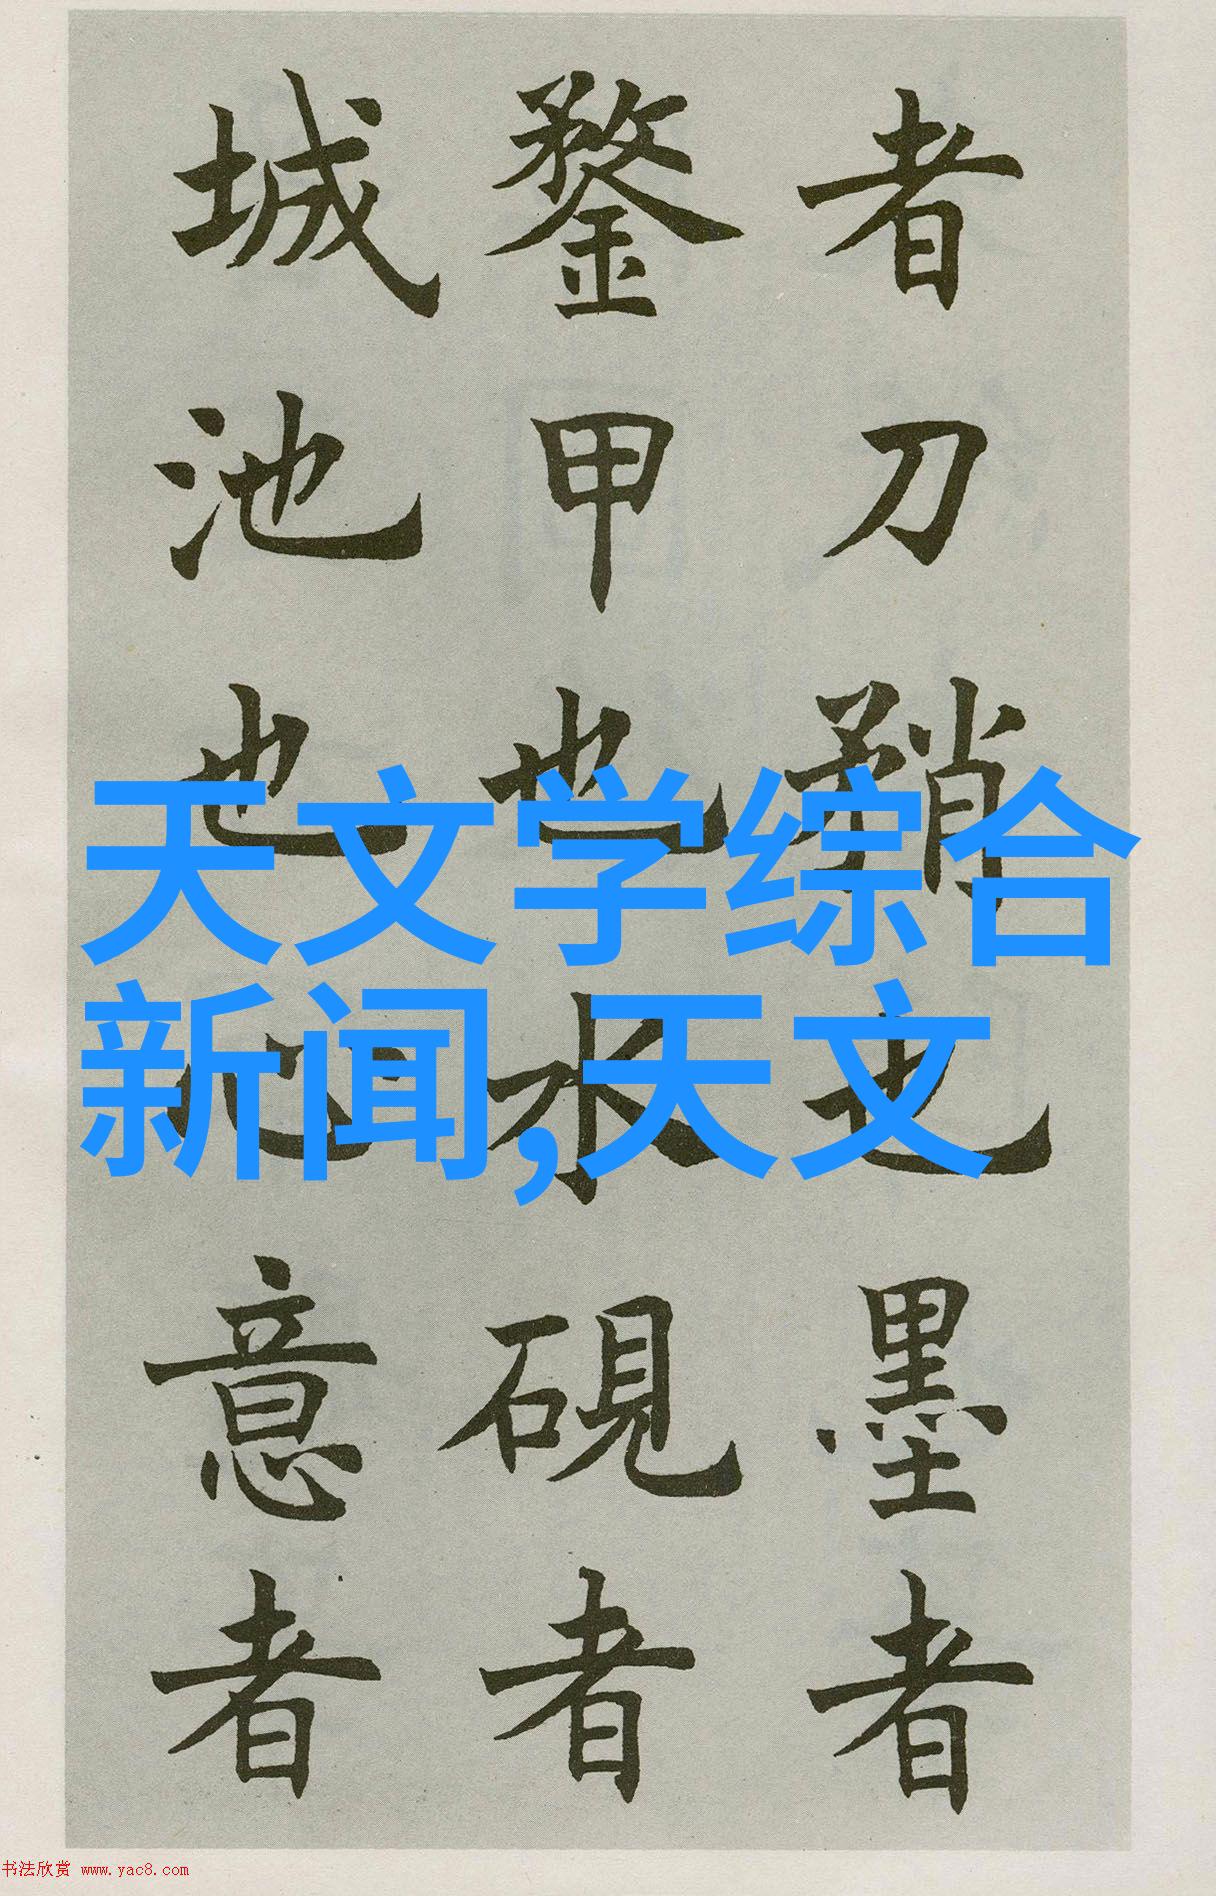 者刀矟也墨者
鍪甲也水硯者
城池也心意者
天文学综合
新闻,天文
书法欣赏 www.yac8.com